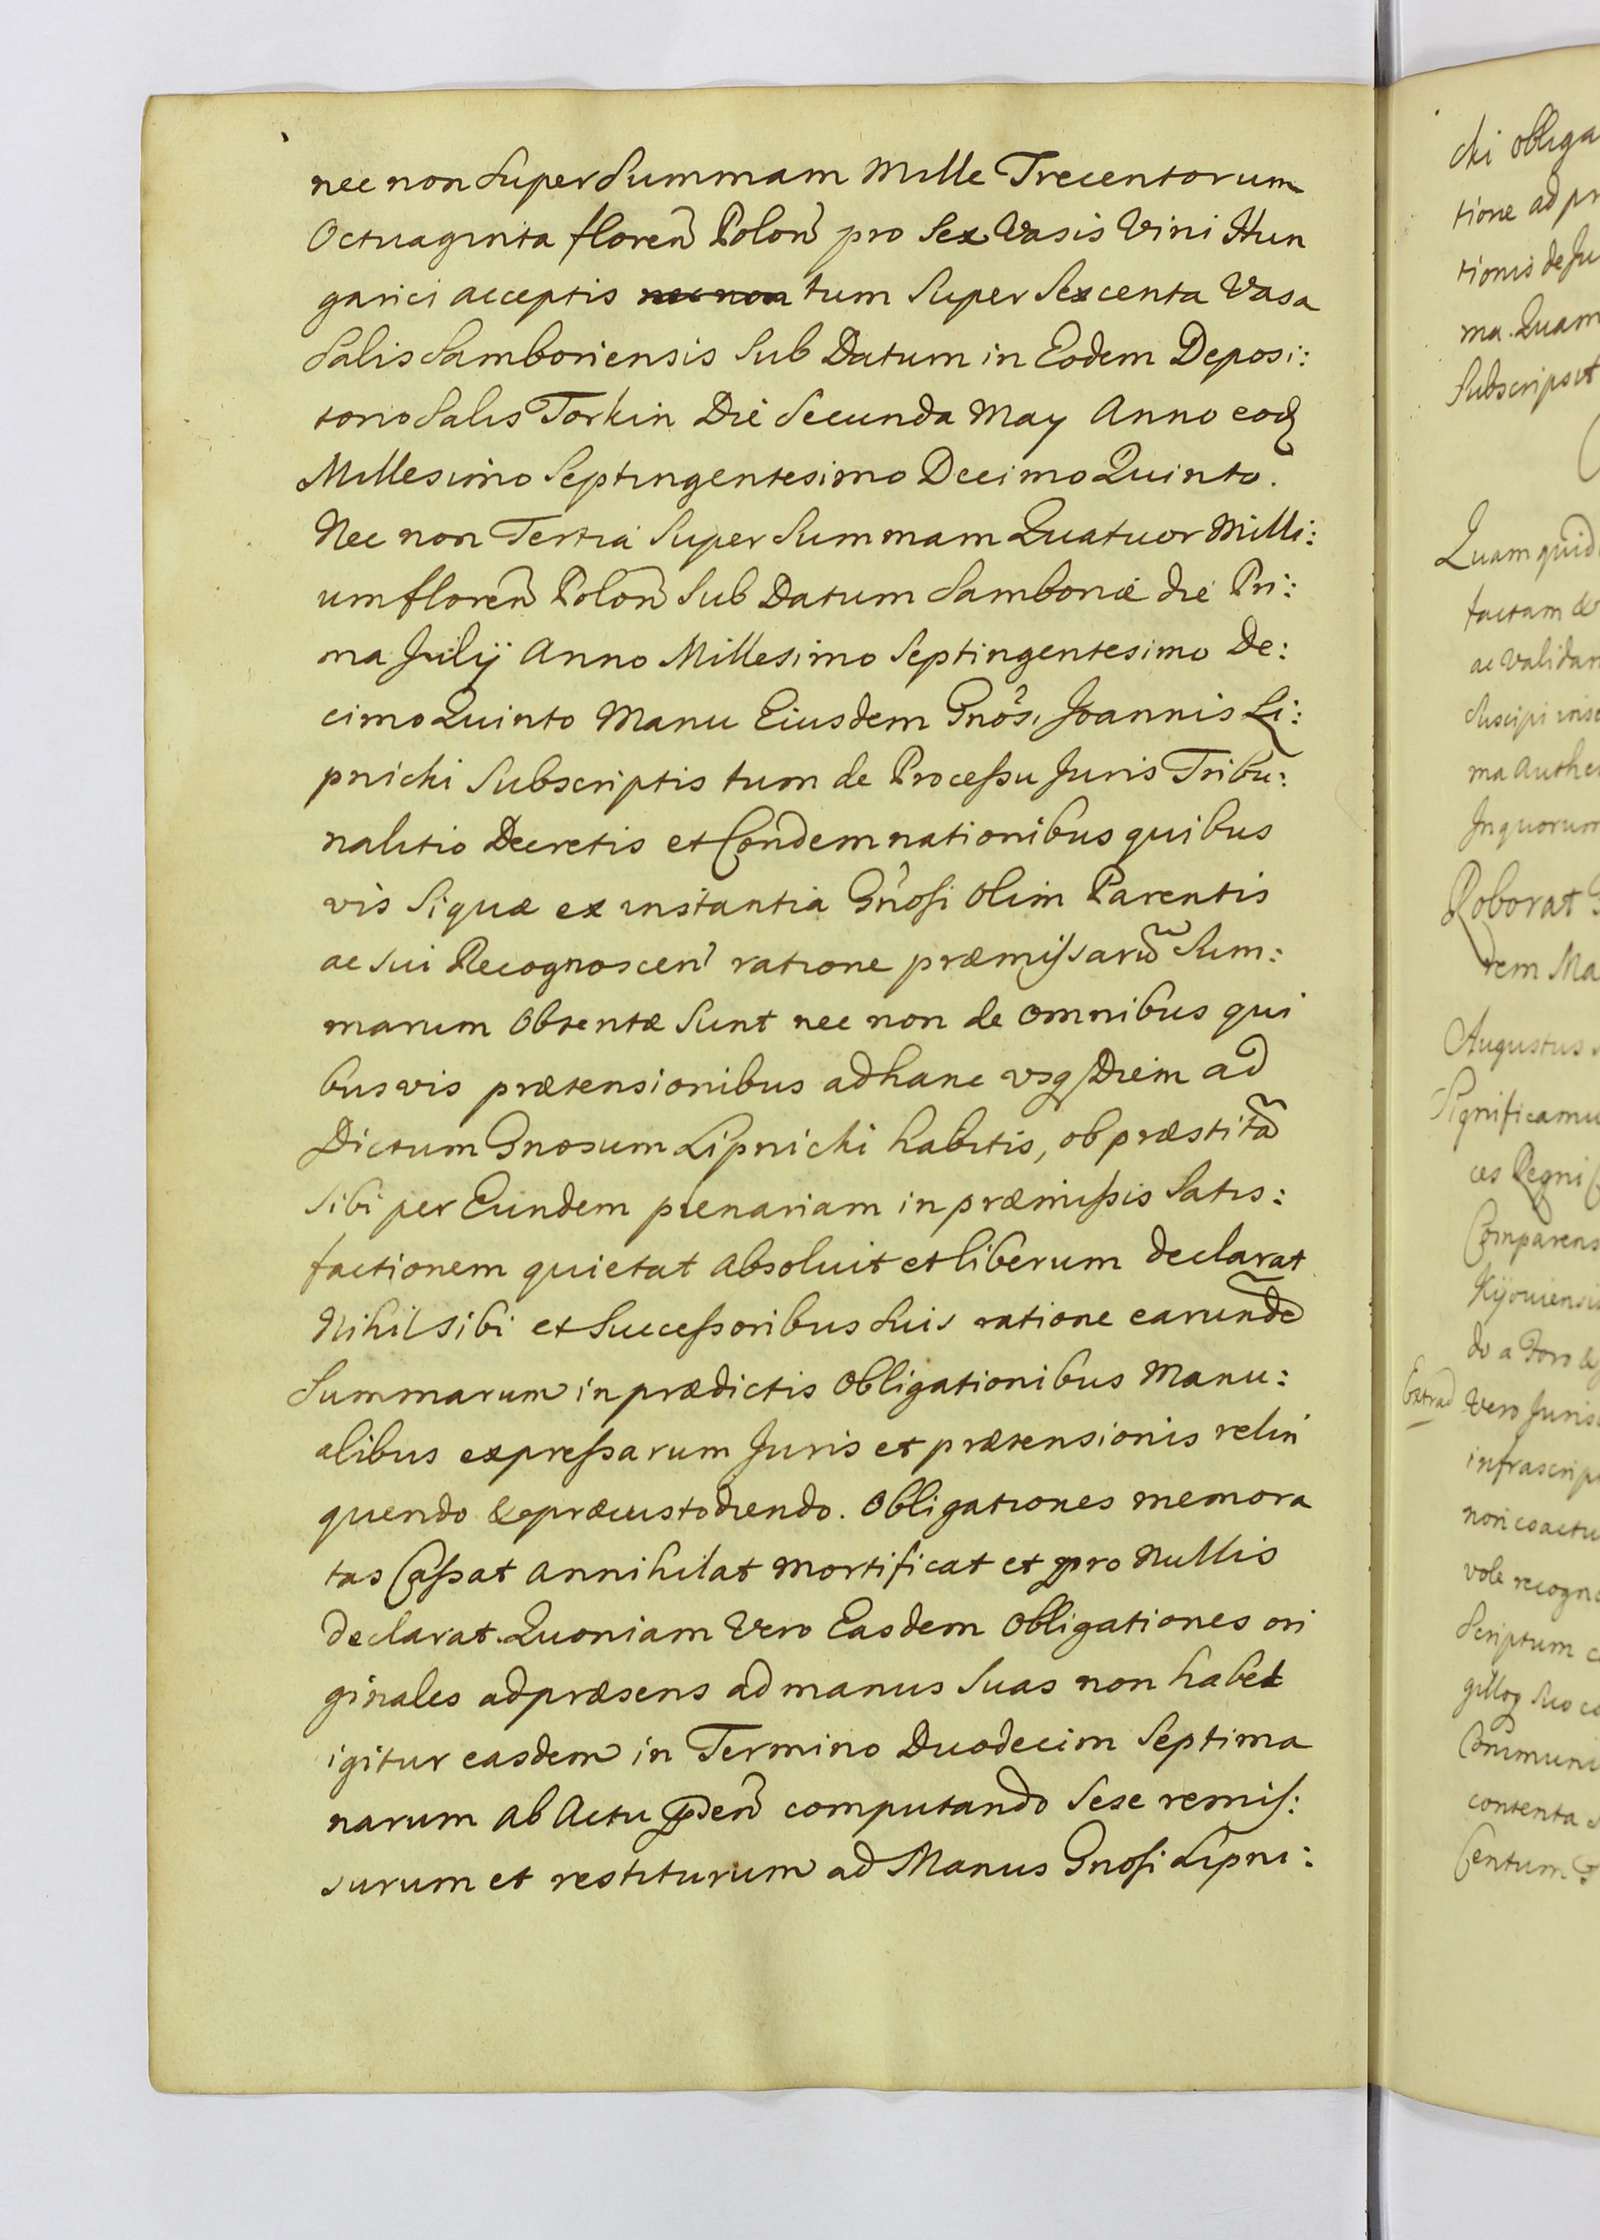 nec non Super Summam Mille Trecentorum
Octuaginta floren̄ Polon̄ pro Sex Vasis Vini Hun
garici acceptis nec non tum Super Sexcenta Vasa
Salis Samboriensis Sub Datum in Eodem Deposi:
torio Salis Torkin Die Secunda May Anno eoq
Millesimo Septingentesimo Decimo Quinto.
Nec non Tertia Super Summam Quatuor Milli:
um floren̄ Polon̄ Sub Datum Samboriæ die Pri:
ma Julij Anno Millesimo Septingentesimo De:
cimo Quinto Manu Eiusdem Gnosi Joannis Li:
pnicki Subscriptis tum de Processu Juris Tribu:
nalitio Decretis et Condemnationibus quibus
vis Siquæ ex instantia Gnosi Olim Parentis
ac sui Recognoscen̄ ratione præmissarū Sum:
marum Obtentæ Sunt nec non de Omnibus qui
busvis prætensionibus ad hanc vsq Diem ad
Dictum Gnosum Lipnicki habitis, ob præstitā
sibi per Eundem plenariam in præmissis Satis:
factionem quietat Absoluit et liberum declarat
Nihil sibi et Successoribus Suis ratione earundē
Summarum in prædictis Obligationibus Manu:
alibus expressarum Juris et prætensionis relin
quendo & præcustodiendo. Obligationes memora
tas Cassat Annihilat Mortificat et pro Nullis
declarat. Quoniam Vero Easdem Obligationes ori
ginales ad præsens ad manus Suas non habet
igitur easdem in Termino Duodecim Septima
narum Ab Actu pden̄ computando Sese remis:
surum et restiturum ad Manus Gnosi Lipni:
cki obliga
tione ad pr
tionis de Ju
ma. Quam
Subscripsit
Quam quid
factam &
ac validam
Suscipi
ma Authe
In quorum
Roborat
rem Ma
Augustus
Significamu
ces Regni
Comparens
Kijouiensi
do a Foro &
Extrad
Vero Juris
infrascrip
non coactu
vole recogno
Scriptum
gilloq Suo
Communi
contenta
Centum